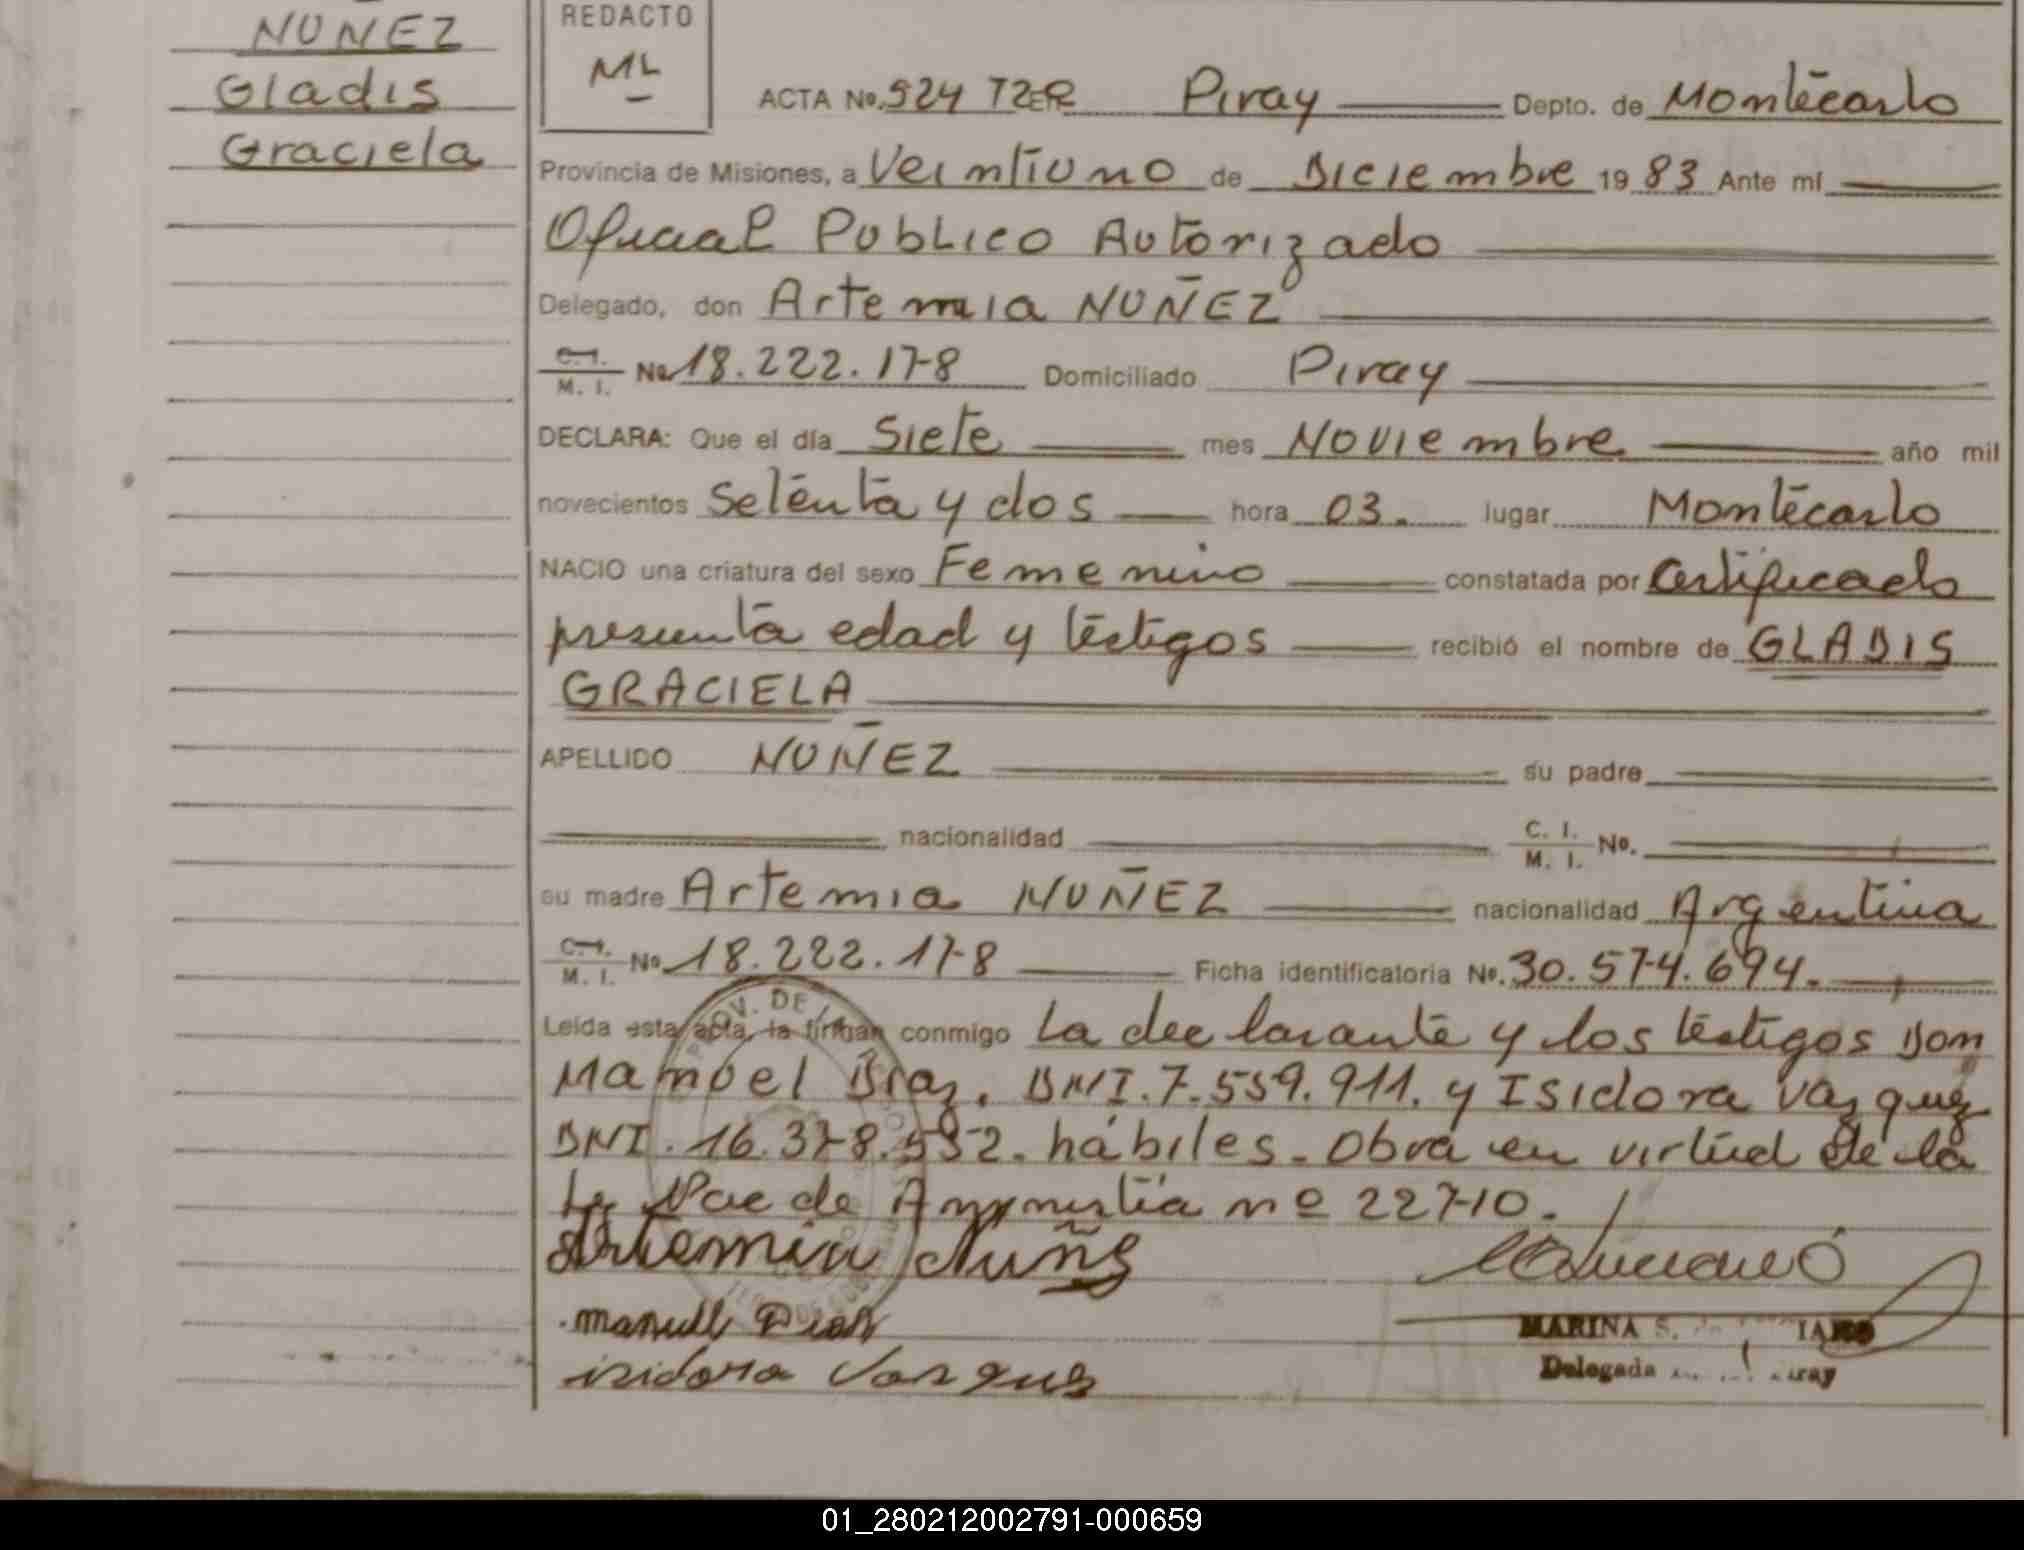 NUÑEZ
Gladis
Graciela
REDACTO
ML
ACTA No. 924 TZER Piray Depto. de Montecarlo
Provincia de Misiones, a Veintiuno de Diciembre 1983 Ante mí
Oficial Publico Autorizado
Delegado, don Artemia NUÑEZ
C.I. / M. I. No 18.222.178 Domiciliado Piray
DECLARA: Que el día Siete mes Noviembre año mil
novecientos Setenta y dos hora 03. lugar Montecarlo
NACIO una criatura del sexo Femenino constatada por Certificado
presunta edad y testigos recibió el nombre de GLADIS
GRACIELA
APELLIDO NUÑEZ su padre
nacionalidad C. I. / M. I. No.
su madre Artemia NUÑEZ nacionalidad Argentina
C.I. / M. I. No 18.222.178 Ficha identificatoria No. 30.574.694.
Leida esta acta, la firman conmigo La declarante y los testigos Don
Manuel Diaz. DNI.7.559.911. y Isidora Vazquez
DNI. 16.378.552. hábiles. Obra en virtud de la
Ley Nac de Amnistia nº 22710.
Artemia Nuñez
manuel Diaz
isidora Vazques
MARINA S.
Delegada
PROV. DE
01_280212002791-000659